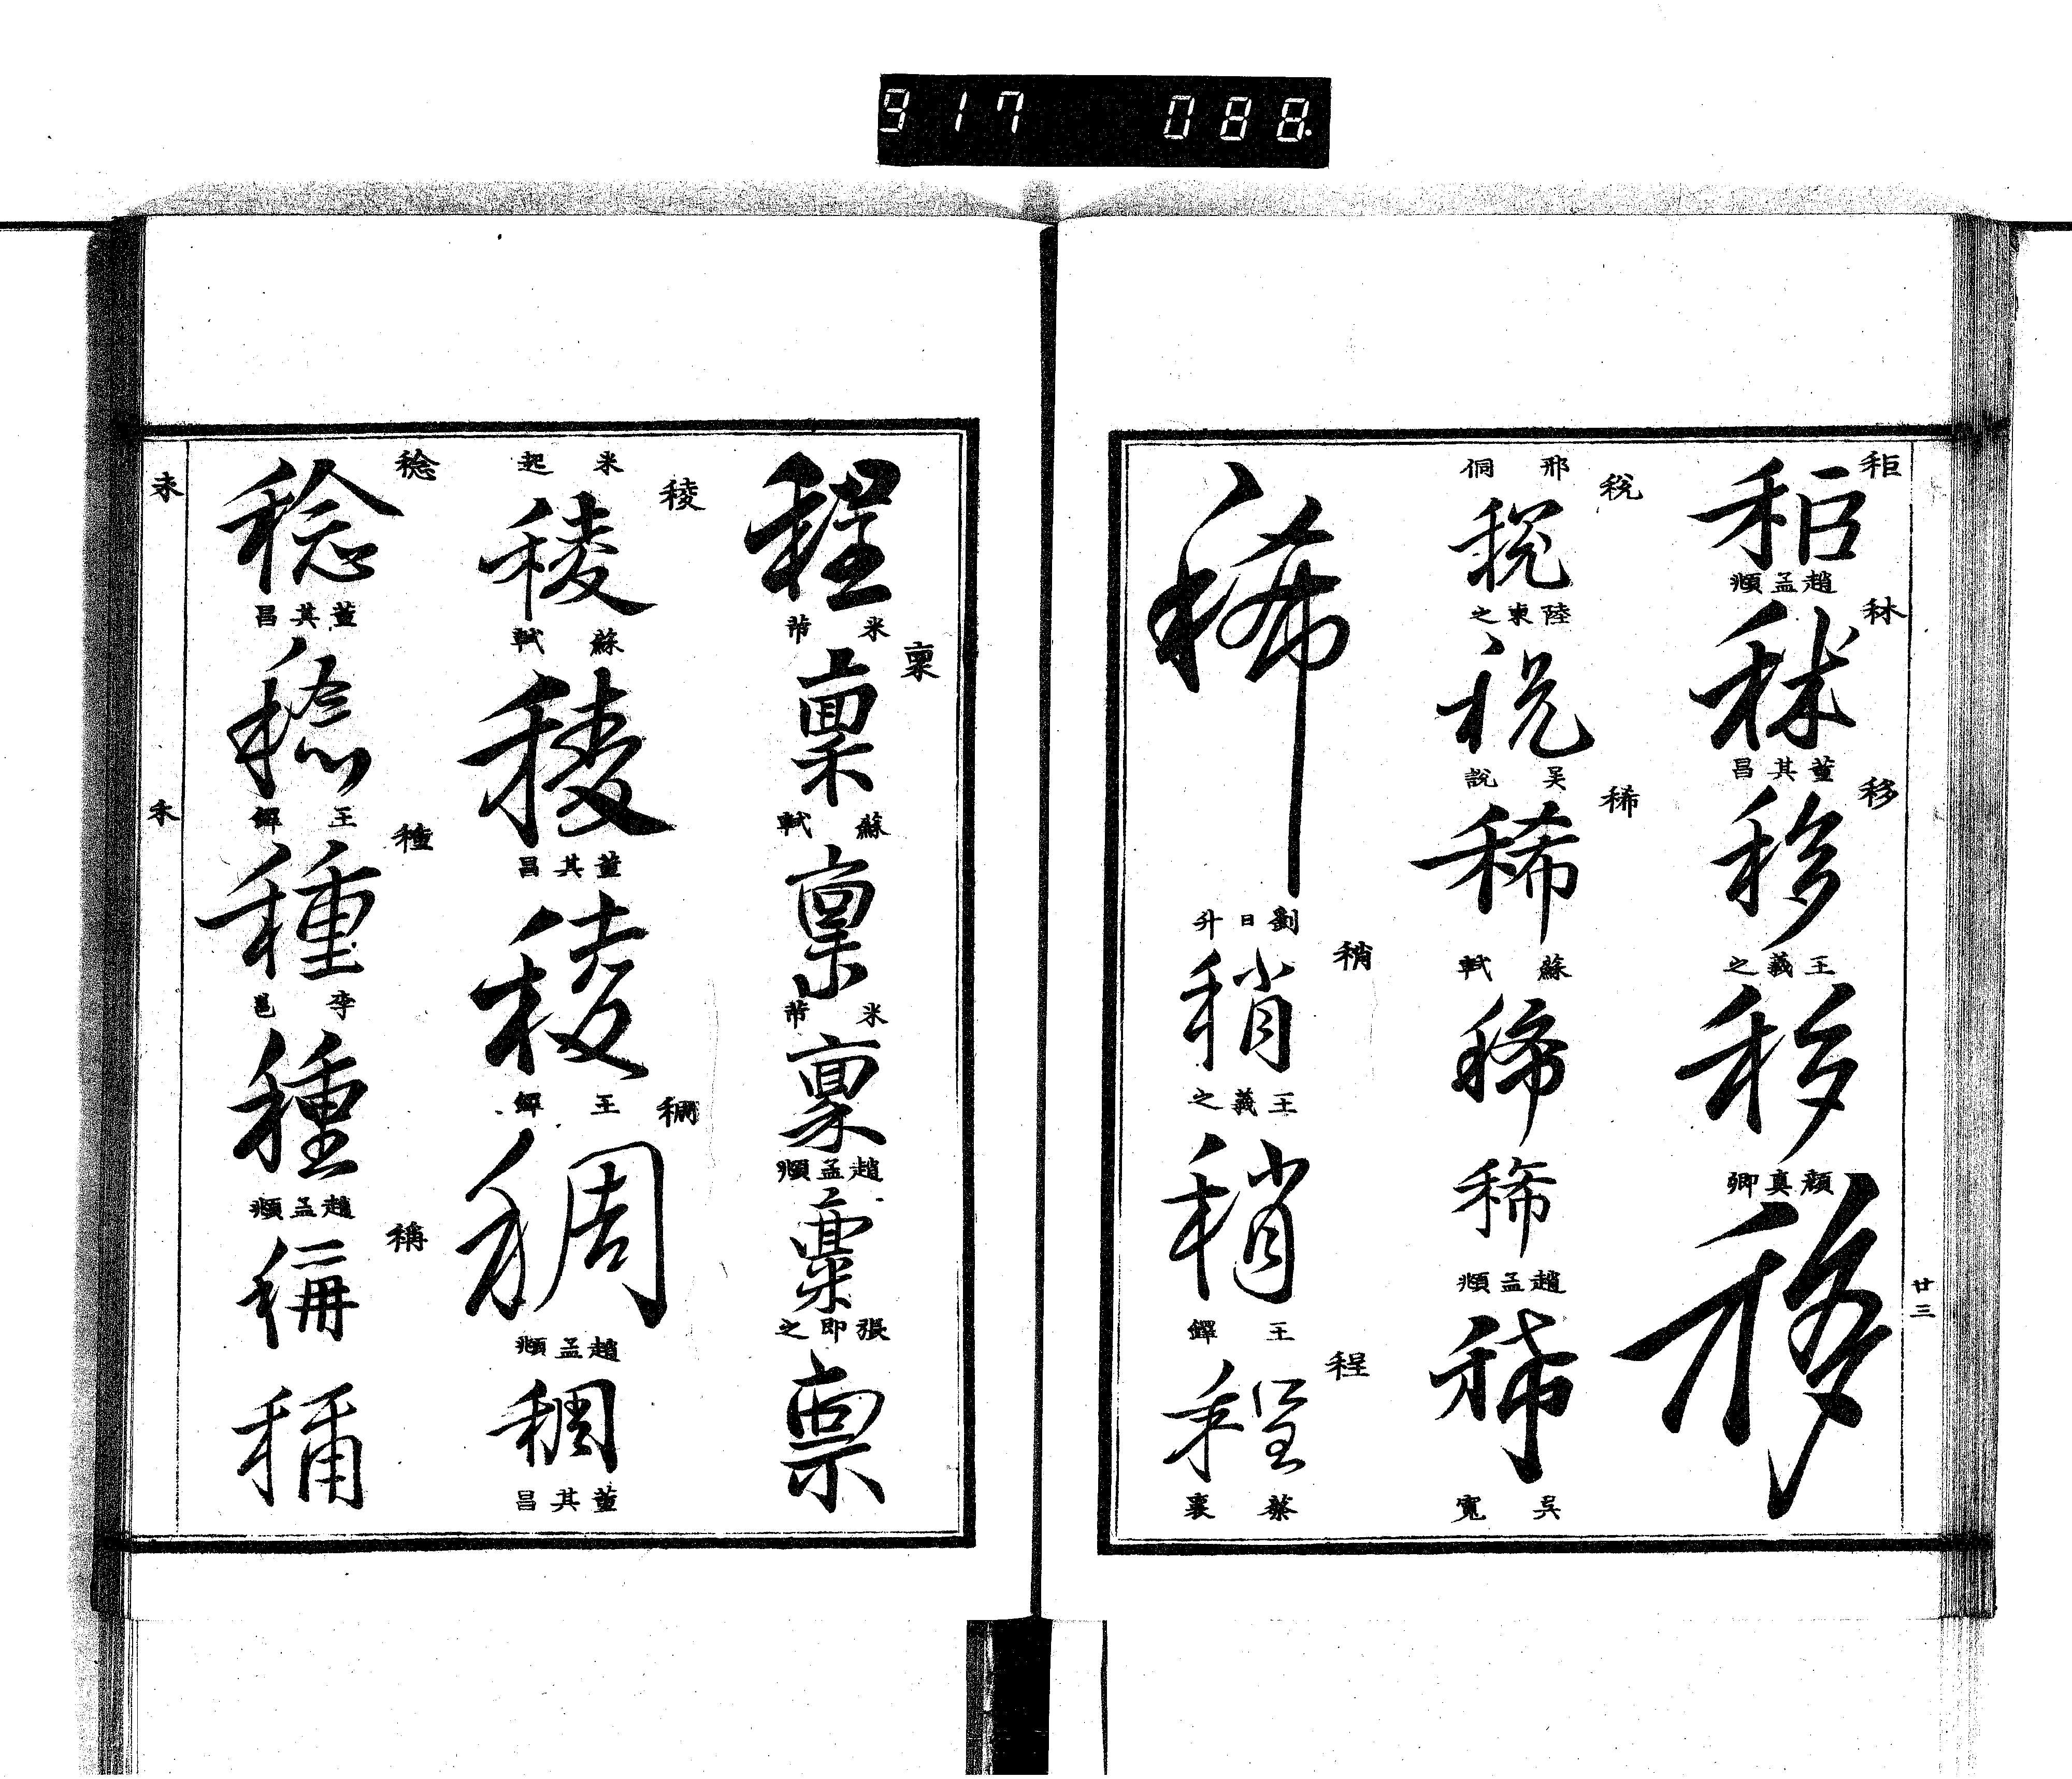 917 088.
秬
秬
趙孟頫
秫
秫
董其昌
移
移
王羲之
移
顏真卿
移
廿三
邢侗
稅
稅
陸柬之
稅
吳說
稀
稀
蘇軾
稀
稀
趙孟頫
稀
吳寬
稀
劉日升
稍
稍
王羲之
稍
王鐸
程
程
蔡襄
程
米芾
稟
稟
蘇軾
稟
米芾
稟
趙孟頫
稟
張即之
稟
米起
稜
稜
蘇軾
稜
董其昌
稜
王鐸
稠
稠
趙孟頫
稠
董其昌
稔
稔
董其昌
稔
王鐸
種
種
李邕
種
趙孟頫
稱
稱
稱
未
禾